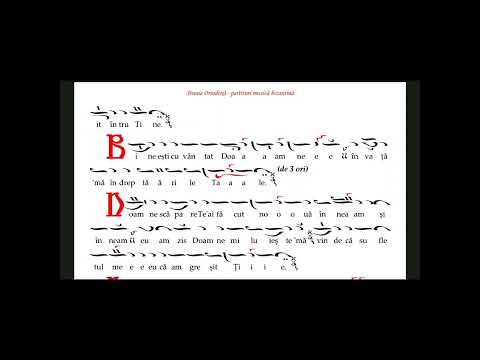 Strana Ortodoxă - partituri muzică bizantină
it în tru Ti ne.
B i ne ești cu vân tat Doa a a am ne e e u în va ță
'mă în drep tă ă ri le Ta a a le. (de 3 ori)
D oam ne scă pa re Te'ai fă cut no o o uă în nea am și
în neam u eu am zis Doam ne mi lu ieș te'mă vin de că su fle
tul me e e eu că am gre șit Ți i i e.